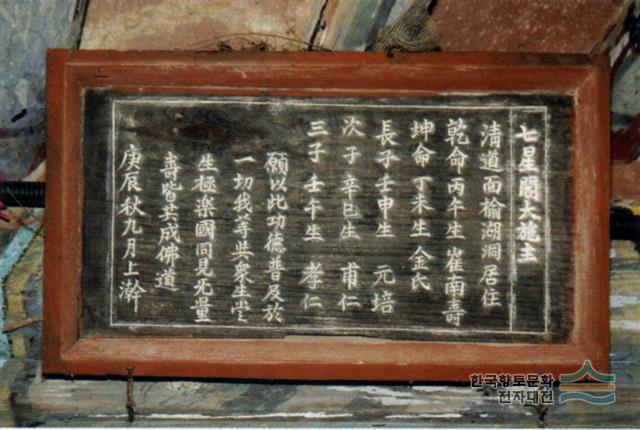 七星閣大施主
清道面楡湖洞居住
乾命丙午生 崔南壽
坤命丁未生 金氏
長子壬申生 元培
次子辛巳生 甫仁
三子壬午生 孝仁
願以此功德普及於
一切我等與衆生當
生極楽國同見无量
壽皆共成佛道
庚辰秋九月上澣
한국향토문화
전자대전